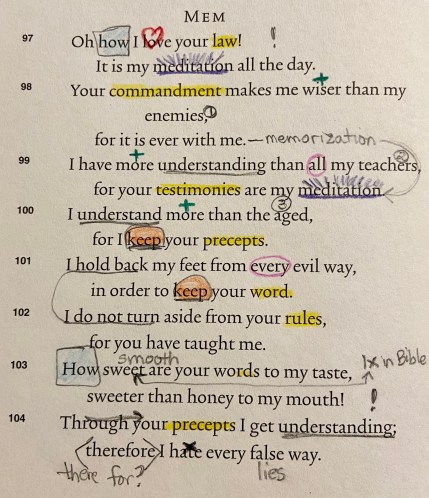 MEM
97 Oh how I love your law! !
It is my meditation all the day.
98 Your commandment makes me wiser than my
enemies, 1
for it is ever with me. — memorization
99 I have more understanding than all my teachers, 2
for your testimonies are my meditation.
100 I understand more than the aged, 3
for I keep your precepts.
101 I hold back my feet from every evil way,
in order to keep your word.
102 I do not turn aside from your rules,
for you have taught me.
smooth
103 How sweet are your words to my taste, 1x in Bible
sweeter than honey to my mouth! !
104 Through your precepts I get understanding;
therefore I hate every false way.
there for? lies